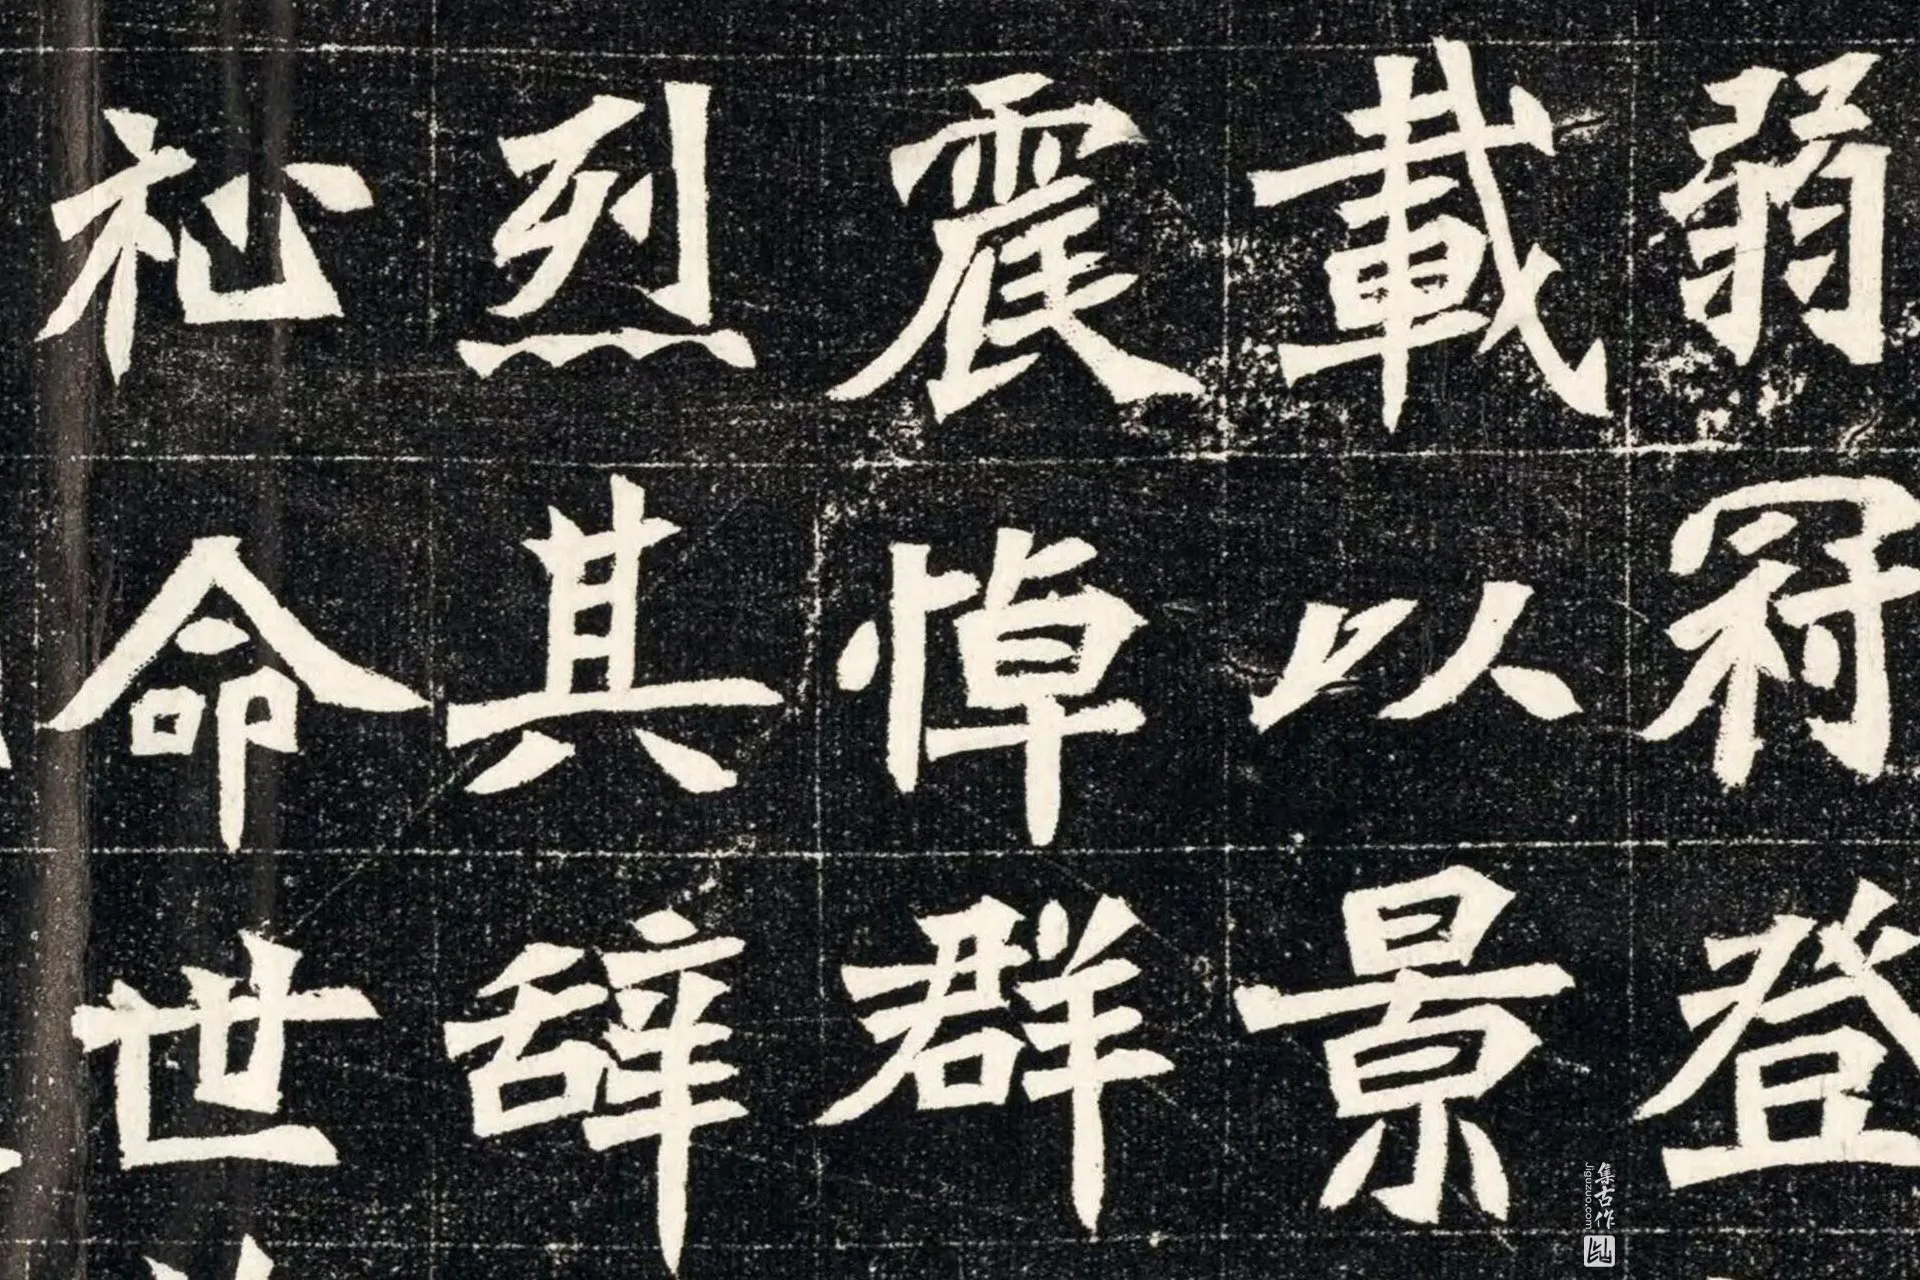 弱冠登
載以景
震悼群
烈其辞
命世
集古作
jiguzuo.com